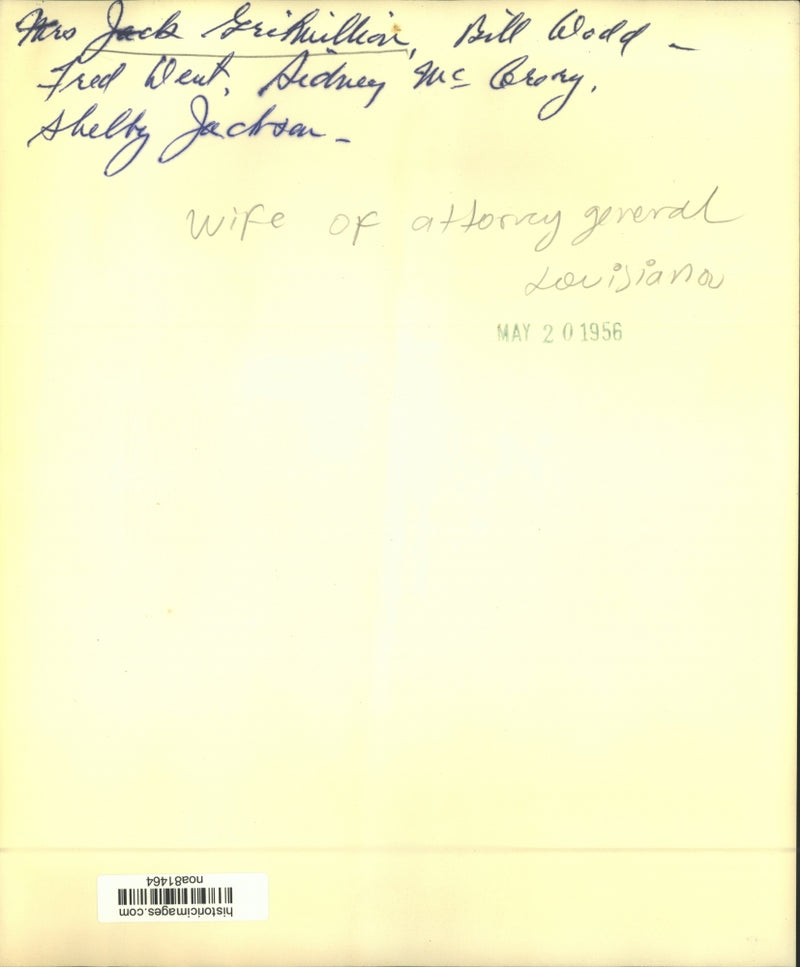 Mrs Jack Gremillion, Bill Dodd -
Fred Dent, Sidney Mc Crory,
Shelby Jackson -
Wife of attorney general
Louisiana
MAY 20 1956
noa81464
historicimages.com